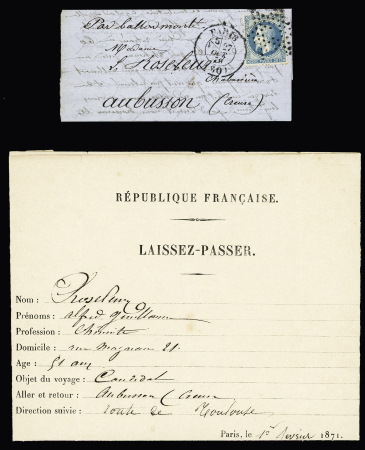 Par ballon monté
Madame
S. Roseleur
aubusson (Creuse)
PARIS
RÉPUBLIQUE FRANÇAISE.
LAISSEZ-PASSER.
Nom : Roseleur
Prénoms : alfred Guillaume
Profession : Chimiste
Domicile : rue Magnan 21.
Age : 51 ans
Objet du voyage : Candidat
Aller et retour : Aubusson (Creuse
Direction suivie : route de Toulouse
Paris, le 1er février 1871.